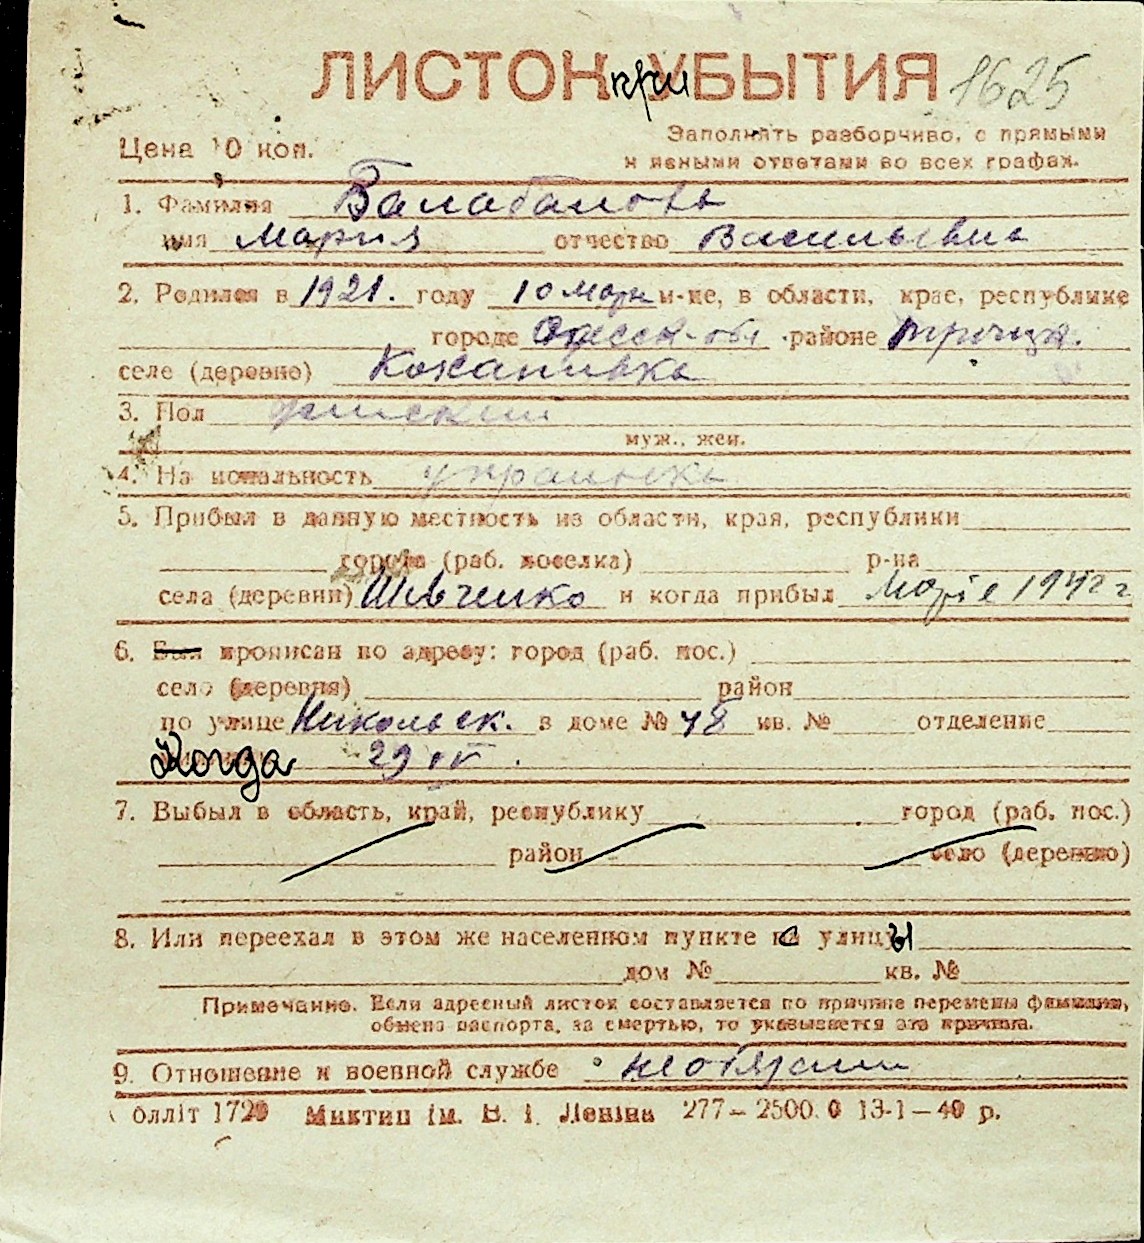 ЛИСТОК при УБЫТИЯ 1625
Цена 10 коп.
Заполнять разборчиво, с прямыми
и ясными ответами во всех графах.
1. Фамилия Балабанова
имя Мария отчество Васильевна
2. Родился в 1921. году 10 март м-це, в области, крае, республике
городе Одесск-обл районе Троицк.
селе (деревне)
3. Пол женский
муж., жен.
4. Национальность украинка
5. Прибыл в данную местность из области, края, республики
города (раб. поселка) р-на
села (деревни) Шевченко и когда прибыл 194 г
6. Был прописан по адресу: город (раб. пос.)
село (деревня) район
по улице Никольск. в доме № 48 кв. № отделение
Когда 29 IV.
7. Выбыл в область, край, республику город (раб. пос.)
район село (деревню)
8. Или переехал в этом же населенном пункте с улицы
дом № кв. №
Примечание. Если адресный листок составляется по причине перемены фамилии,
обмена паспорта, за смертью, то указывается эта причина.
9. Отношение к военной службе необязан
Обллiт 1720 Миктип iм. В. I. Ленiна 277 – 2500.0 13-1 – 40 р.